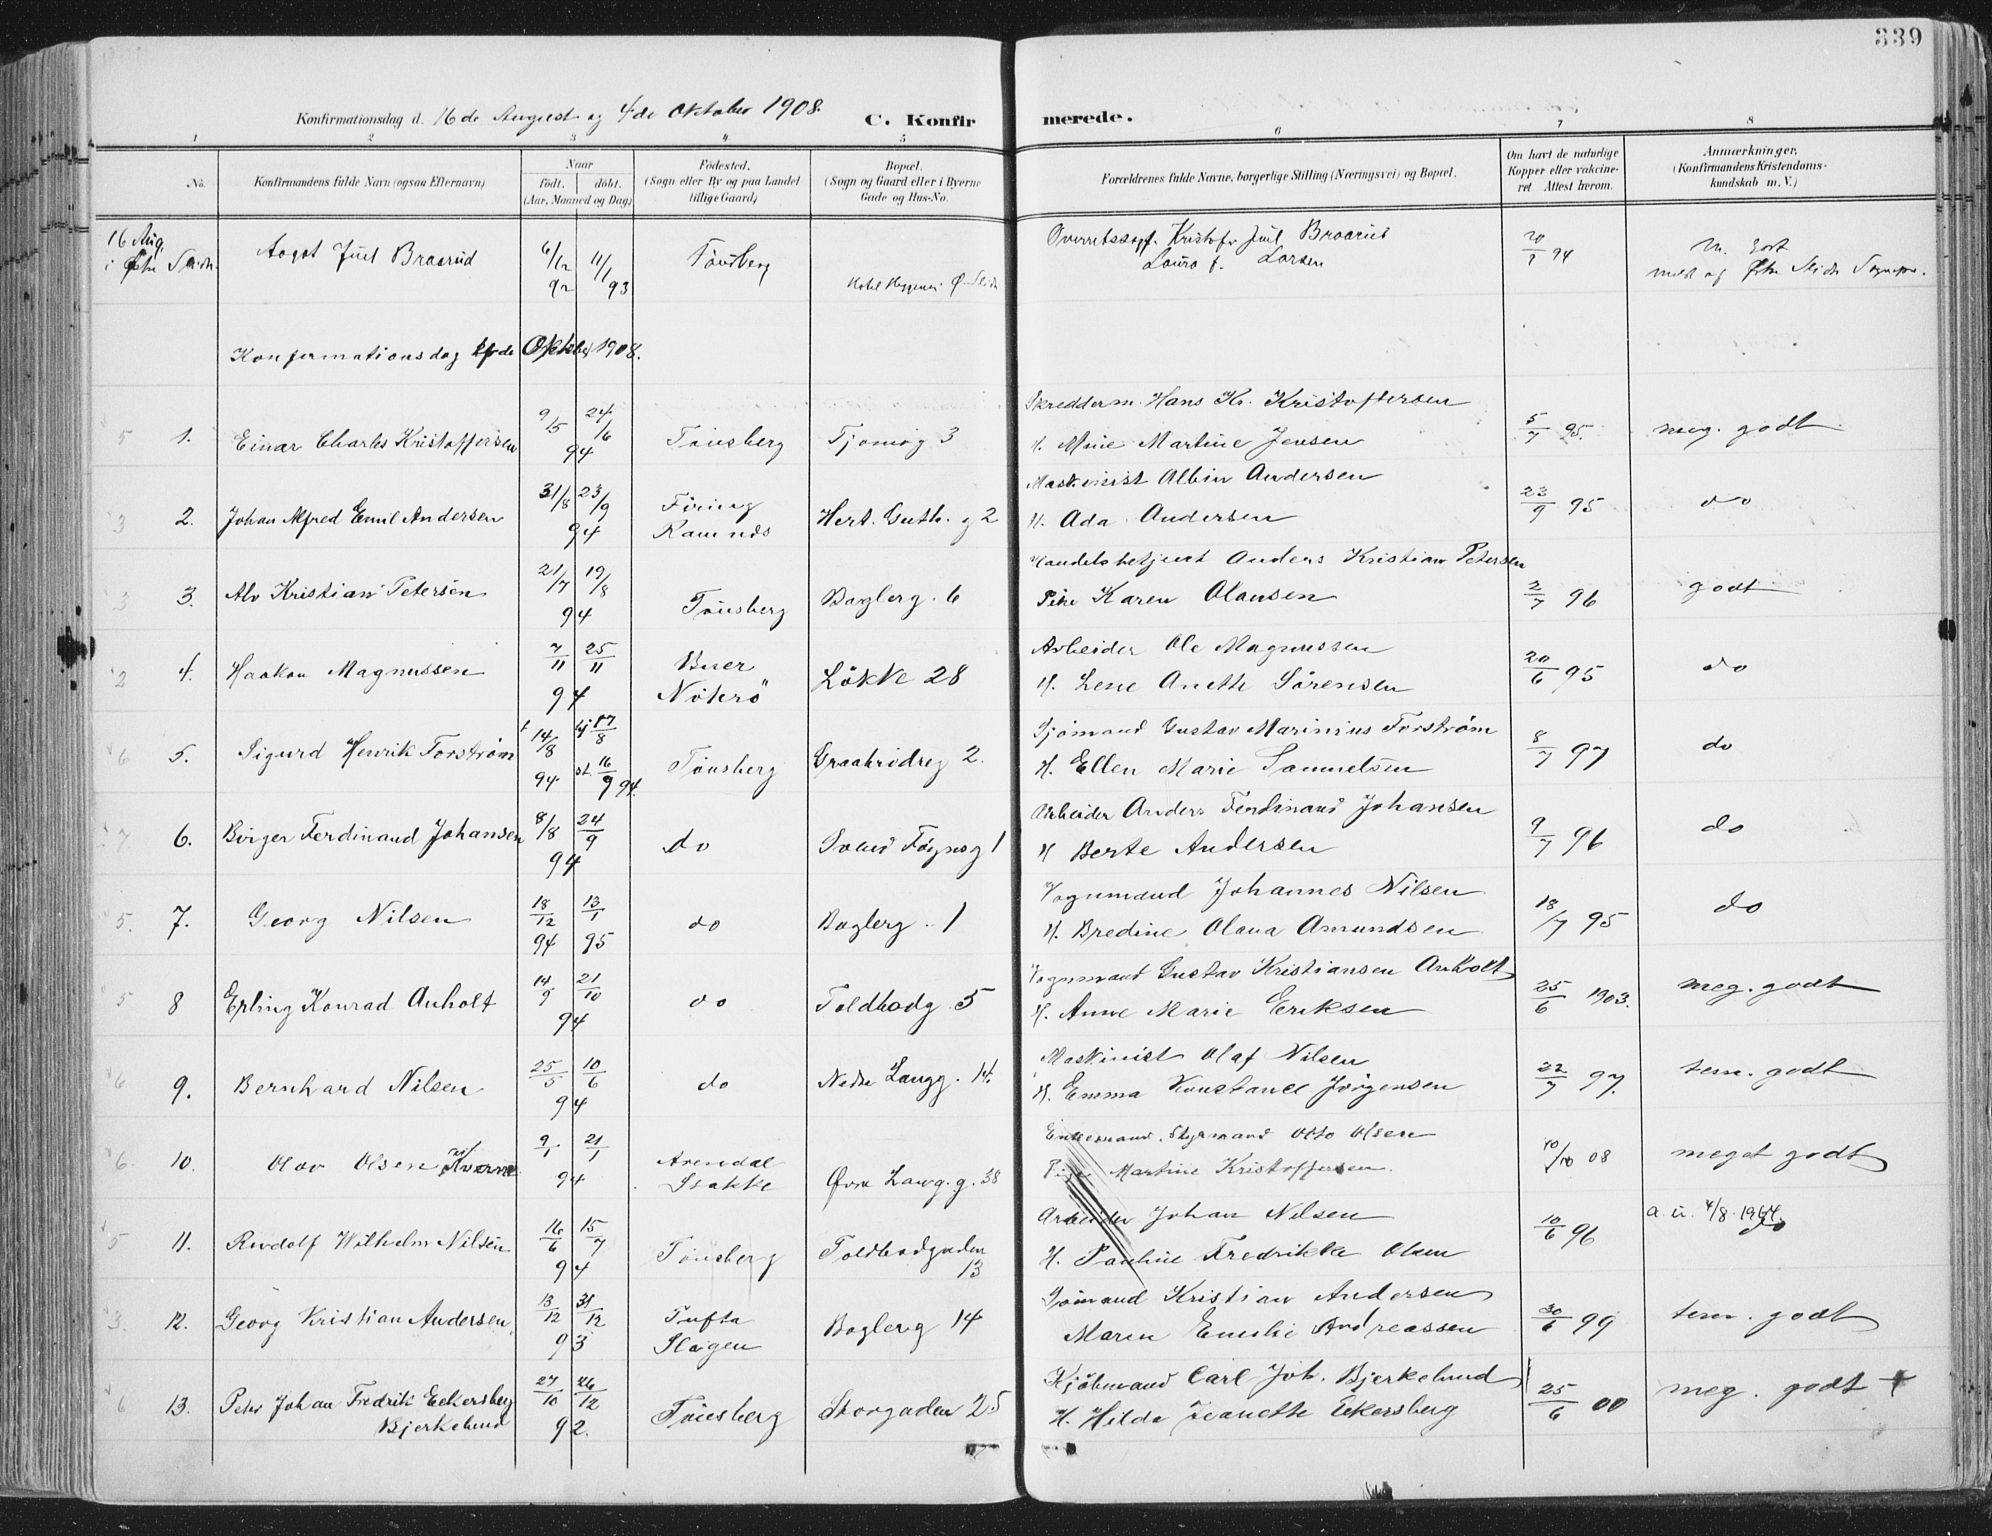 339
Konfirmationsdag d. 16de August og 4de Oktober 1908.
C. Konfirmerede.
1 2 3 4 5 6 7 8
No.
Konfirmandens fulde Navn (ogsaa Efternavn)
Naar
födt. döbt.
(Aar, Maaned og Dag)
Födested.
(Sogn eller By og paa Landet
tillige Gaard)
Bopæl.
(Sogn og Gaard eller i Byerne
Gade og Hus-No.
Forældrenes fulde Navne, borgerlige Stilling (Næringsvei) og Bopæl.
Om havt de naturlige
Kopper eller vakcine-
ret Attest herom.
Anmærkninger.
(Konfirmandens Kristendoms-
kundskab m. V.)
16 Aug. Aagot Juel Braarud 6/12 92 11/1 93 Tönsberg Kristofer Juel Braarud
Laura f. Larsen
Konfirmationsdag 4de Oktober 1908.
1. Einar Charles Kristoffersen 9/5 24/6 94 Tönsberg Tjömög 3
Skredderm. Hans Kr. Kristoffersen
H. Mine Martine Jensen 5/7 95. meg. godt
2. Johan Alfred Emil Andersen 31/8 23/9 94 Ramnes
Maskinist Albin Andersen
H. Ada Andersen 23/9 95 do
3. Alv Kristian Petersen 21/7 19/8 94 Tönsberg Baglerg. 6
Handelsbetjent Anders Kristian Petersen
Karen Olausen 2/7 96 godt
4. Haakon Magnussen 7/11 25/11 94 Nöterö Lökke 28
Arbeider Ole Magnussen
H. Lene Anette Sörensen 20/6 95 do
5. Sigurd Henrik Torström 14/8 94 hj 17/8 st. 16/9 94. Tönsberg
Sjömand Gustav Marinius Torström
H. Ellen Marie Samuelsen 8/7 97 do
6. Birger Ferdinand Johansen 8/8 24/9 94 do
Arbeider Anders Ferdinand Johansen
H Berte Andersen 9/7 96 do
7. Georg Nilsen 18/12 94 13/1 95 do Baglerg. 1
Vognmand Johannes Nilsen
H. Bredine Olava Amundsen 18/7 95 do
8 Erling Konrad Anholt 14/9 21/10 94 do Toldbodg. 5
Vognmand Gustav Kristiansen Anholt
H. Anne Marie Eriksen 25/6 1903. meg. godt
9. Bernhard Nilsen 25/5 10/6 94 do Nedre Langg. 14.
Maskinist Olaf Nilsen
H. Emma Konstance Jörgensen 22/7 97. tem. godt
10. Olav Olsen Kverne 9/1 21/1 94 Arendal
Stokke Øvre Lang.g. 38
Enkemand. Styrmand Otto Olsen
Pige Martine Kristoffersen. 10/10 08 meget godt
11. Rudolf Wilhelm Nilsen 16/6 15/7 94 Tönsberg Toldbodgaden
13
Arbeider Johan Nilsen
H. Pauline Fredrikke Olsen 10/6 96 a. u. 4/8. 1964.
do
12. Georg Kristian Andersen 13/12 31/12 93 Tufta
Slagen Baglerg 14
Sjömand Kristian Andersen
Maren Emilie Andreassen 30/6 99 tem. godt
13. Peter Johan Fredrik Eckersberg
Bjerkelund 27/10 26/12 92. Tönsberg Storgaden 25
Kjöbmand Carl Joh. Bjerkelund
H. Hilda Jeanette Eckersberg 25/6 00 meg. godt +